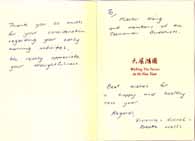 Thank you so much
for your consideration
regarding your early
morning activities.
We really appreciate
your thoughtfulness.
To
Master Wang
and members of the
大展鴻圖
Wishing You Success
in the New Year
Best wishes for
a happy and healthy
new year
Regards